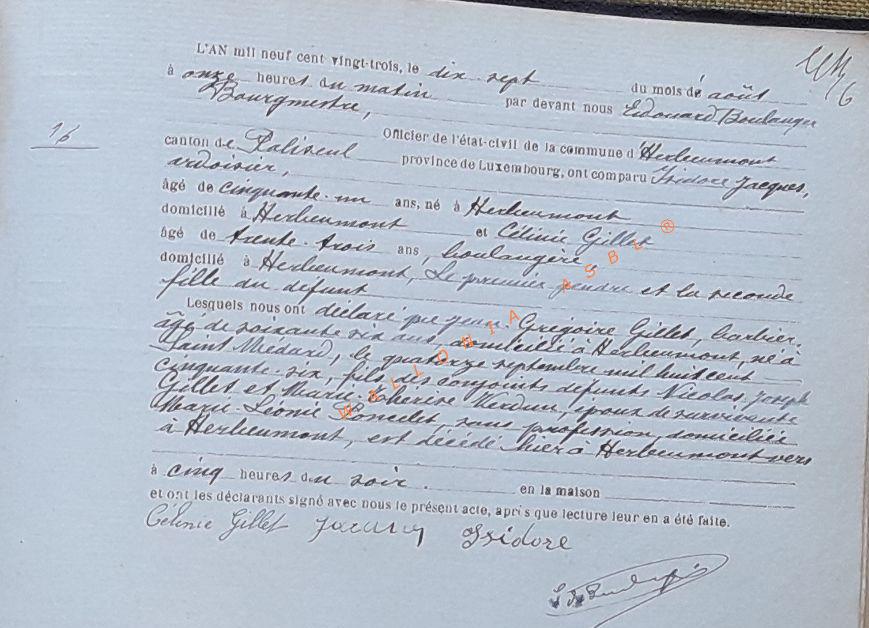 L'AN mil neuf cent vingt-trois, le dix sept du mois de août
à onze heures du matin par devant nous Edouard Boulanger
Bourgmestre,
Officier de l'état-civil de la commune d'Herbeumont
16
canton de Paliseul province de Luxembourg, ont comparu Isidore Jacques,
ardoisier,
âgé de cinquante-un ans, né à Herbeumont
domicilié à Herbeumont et Célinie Gillet
âgé de trente-trois ans, boulangère,
domicilié à Herbeumont, le premier gendre et la seconde
fille du défunt
Lesquels nous ont déclaré que Jean-Grégoire Gillet, barbier,
âgé de soixante six ans, domicilié à Herbeumont, né à
Saint Médard, le quatorze septembre mil huit cent
cinquante-six, fils des conjoints défunts Nicolas-Joseph
Gillet et Marie-Thérèse Verdun, époux de survivante
Marie-Léonie Poncelet, sans profession, domiciliée
à Herbeumont, est décédé hier à Herbeumont vers
à cinq heures du soir. en la maison
et ont les déclarants signé avec nous le présent acte, après que lecture leur en a été faite.
Célinie Gillet Jacques Isidore
WALLONIA ASBL ®